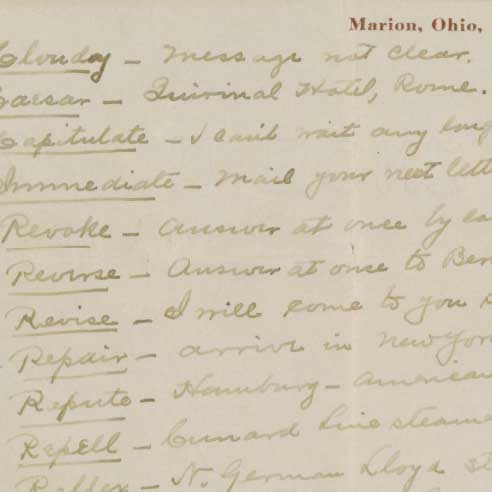 Marion, Ohio,
Clouday - Message not clear.
Caesar - Quirinal Hotel, Rome.
Capitulate - I can't wait any long
Immediate - Mail your next lett
Revoke - Answer at once by ca
Reverse - Answer at once to Ber
Revise - I will come to you
Repair - arrive in New York
Repute - Hamburg - American
Repell - Cunard Line steame
Reflex - N. German Lloyd st